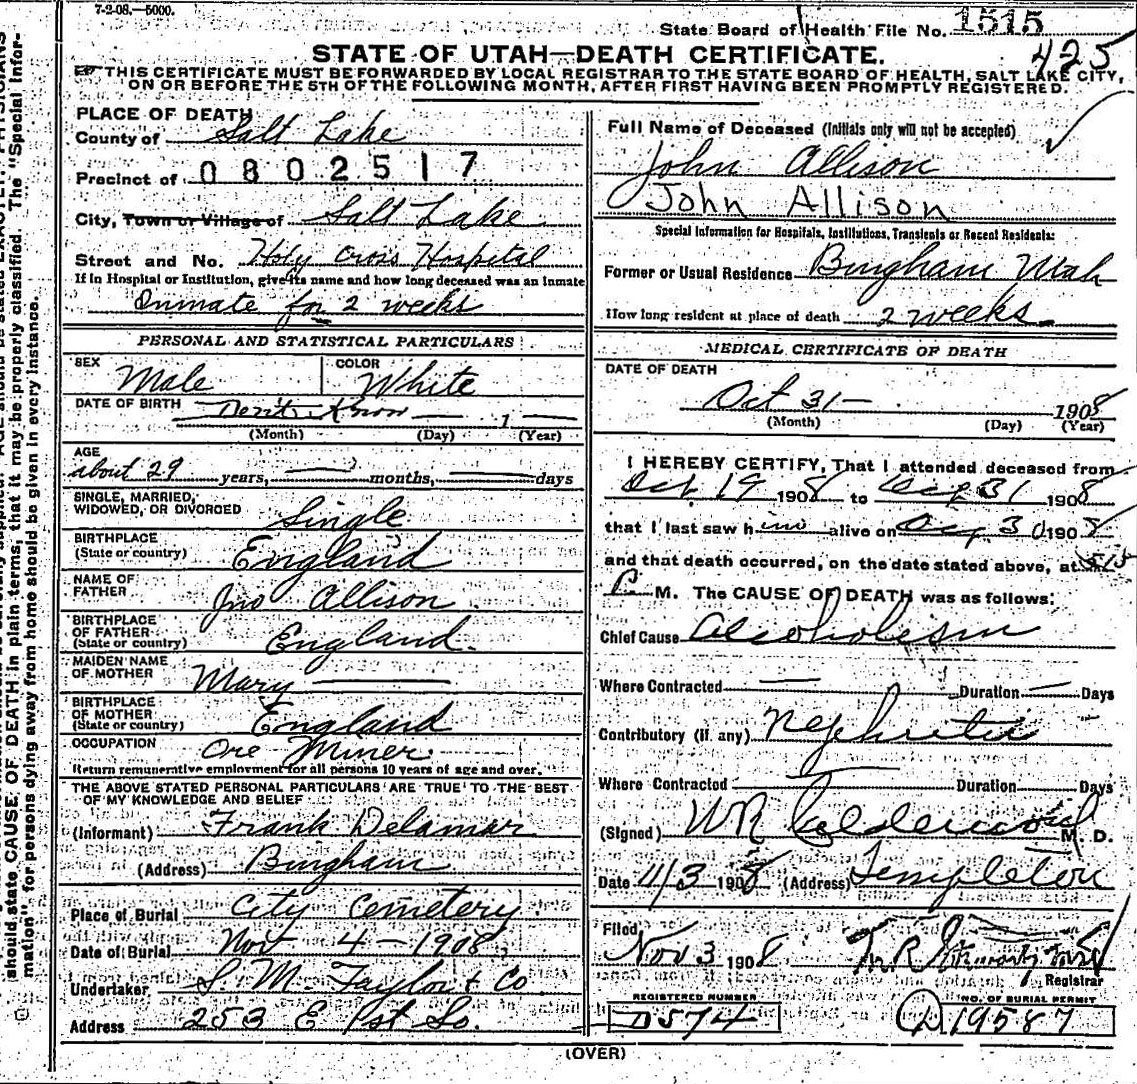 7-2-08.—5000.
State Board of Health File No. 1515
425
STATE OF UTAH—DEATH CERTIFICATE.
THIS CERTIFICATE MUST BE FORWARDED BY LOCAL REGISTRAR TO THE STATE BOARD OF HEALTH, SALT LAKE CITY,
ON OR BEFORE THE 5TH OF THE FOLLOWING MONTH, AFTER FIRST HAVING BEEN PROMPTLY REGISTERED.
PLACE OF DEATH
County of Salt Lake
Precinct of 0802517
City, Town or Village of Salt Lake
Street and No. Holy Cross Hospital
If in Hospital or Institution, give its name and how long deceased was an inmate
Inmate for 2 weeks
PERSONAL AND STATISTICAL PARTICULARS
SEX Male COLOR White
DATE OF BIRTH Don't Know — 1 —
(Month) (Day) (Year)
AGE
about 29 years, — months, — days
SINGLE, MARRIED,
WIDOWED, OR DIVORCED Single
BIRTHPLACE
(State or country) England
NAME OF
FATHER Jno Allison
BIRTHPLACE
OF FATHER
(State or country) England.
MAIDEN NAME
OF MOTHER Mary —
BIRTHPLACE
OF MOTHER
(State or country) England
OCCUPATION Ore Miner
Return remunerative employment for all persons 10 years of age and over.
THE ABOVE STATED PERSONAL PARTICULARS ARE TRUE TO THE BEST
OF MY KNOWLEDGE AND BELIEF
(Informant) Frank Delamar
(Address) Bingham
Place of Burial City Cemetery.
Date of Burial Nov 4 — 1908
Undertaker S. M. Taylor & Co
Address 253 E 1st So.
Full Name of Deceased (Initials only will not be accepted)
John Allison
John Allison
Special Information for Hospitals, Institutions, Transients or Recent Residents:
Former or Usual Residence Bingham Utah
How long resident at place of death 2 weeks
MEDICAL CERTIFICATE OF DEATH
DATE OF DEATH
Oct 31 — 1908
(Month) (Day) (Year)
I HEREBY CERTIFY, That I attended deceased from
Oct 19 1908 to 31 1908
that I last saw him alive on 30 1908
and that death occurred, on the date stated above, at 515
P. M. The CAUSE OF DEATH was as follows:
Chief Cause Alcoholism
Where Contracted — Duration — Days
Contributory (if any) Nephritis
Where Contracted — Duration — Days
(Signed) WR Calderwood M. D.
Date 11/3 1908 (Address) Templeton
Filed
Nov 3 1908
Registrar
REGISTERED NUMBER
D574
NO. OF BURIAL PERMIT
D 19587
(OVER)
should state CAUSE OF DEATH in plain terms, that it may be properly classified. The "Special Infor-
mation" for persons dying away from home should be given in every instance.